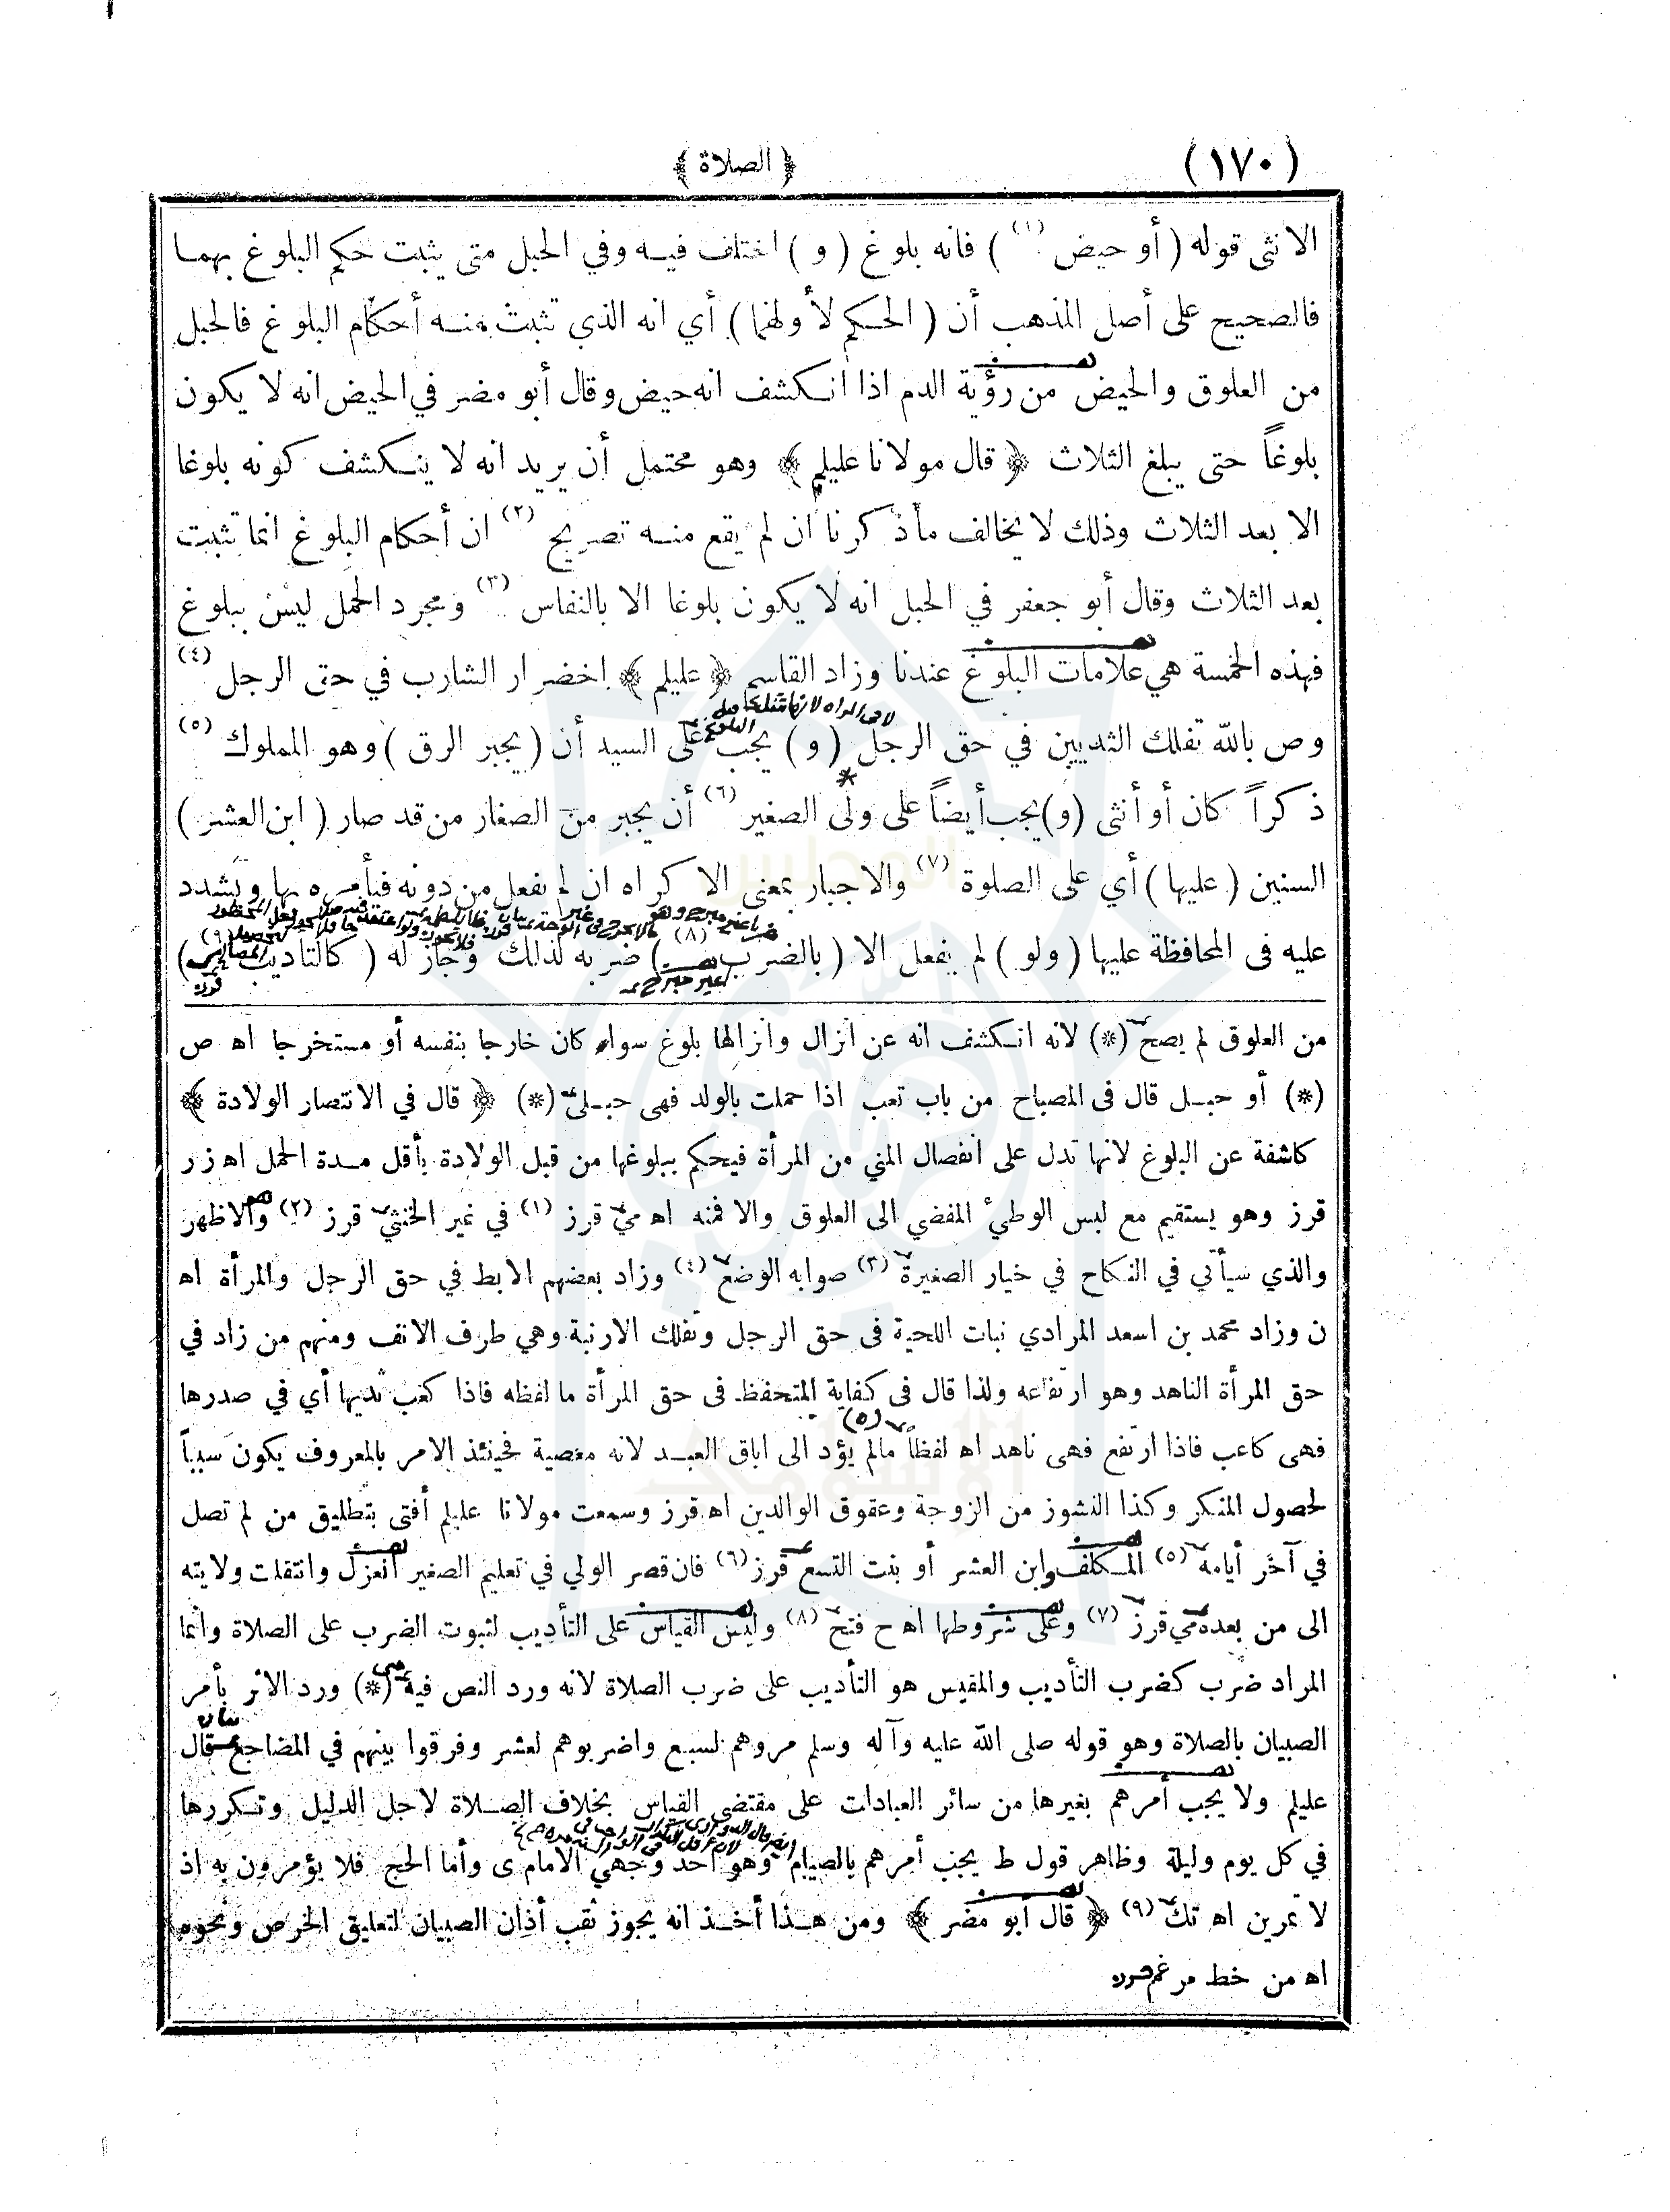 (١٧٠)
﴿ الصلاة ﴾
الانثى قوله ( أو حيض (١) ) فانه بلوغ ( و ) اختلف فيه وفي الحبل متى يثبت حكم البلوغ بهما
فالصحيح على أصل المذهب أن ( الحكم لأولهما ) أي انه الذي تثبت منه أحكام البلوغ فالحبل
من العلوق والحيض من رؤية الدم اذا انكشف انه حيض وقال أبو مضر في الحيض انه لا يكون
بلوغاً حتى يبلغ الثلاث ﴿ قال مولانا عليلم ﴾ وهو محتمل أن يريد انه لا ينكشف كونه بلوغا
الا بعد الثلاث وذلك لا يخالف ما ذكرنا ان لم يقع منه تصريح (٢) ان أحكام البلوغ انما تثبت
بعد الثلاث وقال أبو جعفر في الحبل انه لا يكون بلوغا الا بالنفاس (٣) ومجرد الحمل ليس ببلوغ
فهذه الخمسة هي علامات البلوغ عندنا وزاد القاسم ﴿ عليلم ﴾ اخضرار الشارب في حق الرجل (٤)
وص بالله تفلك الثديين في حق الرجل ( و ) يجب على السيد أن ( يجبر الرق ) وهو المملوك (٥)
ذكراً كان أو أنثى (و) يجب أيضاً على ولى الصغير (٦) أن يجبر من الصغار من قد صار ( ابن العشر )
السنين ( عليها ) أي على الصلوة (٧) والاجبار بمعنى الاكراه ان لم يفعل من دونه فيأمره بها ويشدد
عليه فى المحافظة عليها ( ولو ) لم يفعل الا ( بالضرب (٨) ) ضربه لذلك وجاز له ( كالتاديب (٩) )
من العلوق لم يصح (*) لانه انكشف انه عن انزال وانزالها بلوغ سواء كان خارجا بنفسه أو مستخرجا اه ص
(*) أو حبل قال فى المصباح من باب تعب اذا حملت بالولد فهى حبلى (*) ﴿ قال في الانتصار الولادة ﴾
كاشفة عن البلوغ لانها تدل على انفصال المني من المرأة فيحكم ببلوغها من قبل الولادة بأقل مدة الحمل اه زر
قرز وهو يستقيم مع لبس الوطئ المفضي الى العلوق والا فمنه اه مي قرز (١) في غير الخنثى قرز (٢) والاظهر
والذي سيأتي في النكاح في خيار الصغيرة (٣) صوابه الوضع (٤) وزاد بعضهم الابط في حق الرجل والمرأة اه
ن وزاد محمد بن اسعد المرادي نبات اللحية فى حق الرجل وتفلك الارنبة وهي طرف الانف ومنهم من زاد في
حق المرأة الناهد وهو ارتفاعه ولذا قال فى كفاية المتحفظ فى حق المرأة ما لفظه فاذا كعب ثديها أي في صدرها
فهى كاعب فاذا ارتفع فهى ناهد اه لفظا (٥) مالم يؤد الى اباق العبد لانه معصية فحينئذ الامر بالمعروف يكون سبباً
لحصول المنكر وكذا النشوز من الزوجة وعقوق الوالدين اه قرز وسمعت مولانا عليلم أفتى بتطليق من لم تصل
في آخر أيامه (٥) المكلف وابن العشر أو بنت التسع قرز (٦) فان قصر الولي في تعليم الصغير انعزل وانتقلت ولايته
الى من بعده مي قرز (٧) وعلى شروطها اه ح فتح (٨) وليس القياس على التأديب لثبوت الضرب على الصلاة وانما
المراد ضرب كضرب التأديب والمقيس هو التأديب على ضرب الصلاة لانه ورد النص فيه (*) ورد الاثر بأمر
الصبيان بالصلاة وهو قوله صلى الله عليه وآله وسلم مروهم لسبع واضربوهم لعشر وفرقوا بينهم في المضاجع قال
عليلم ولا يجب أمرهم بغيرها من سائر العبادات على مقتضى القياس بخلاف الصلاة لاجل الدليل وتكررها
في كل يوم وليلة وظاهر قول ط يجب أمرهم بالصيام وهو أحد وجهي الامام ى وأما الحج فلا يؤمرون به اذ
لا تمرين اه تك (٩) ﴿ قال أبو مضر ﴾ ومن هذا أخذ انه يجوز ثقب أذان الصبيان لتعليق الخرص ونحوه
اه من خط مرغم